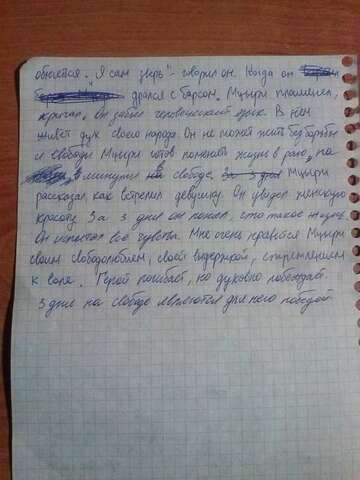 обнется. "Я сам зверь" - говорил он. Когда он
дрался с барсом. Мцыри пламенел,
кричал, он забыл человеческий язык. В нем
живет дух своего народа. Он не может жить без борьбы
и свободы. Мцыри готов поменять жизнь в раю, на
3 минуты на свободе. За 3 дня Мцыри
рассказал как встретил девушку. Он увидел женскую
красоту. За 3 дня он понял, что такое жизнь.
Он испытал все чувства. Мне очень нравится Мцыри
своим свободолюбием, своей выдержкой, стремлением
к воле. Герой погибает, но духовно побеждает.
3 дня на свободе являются для него победой.